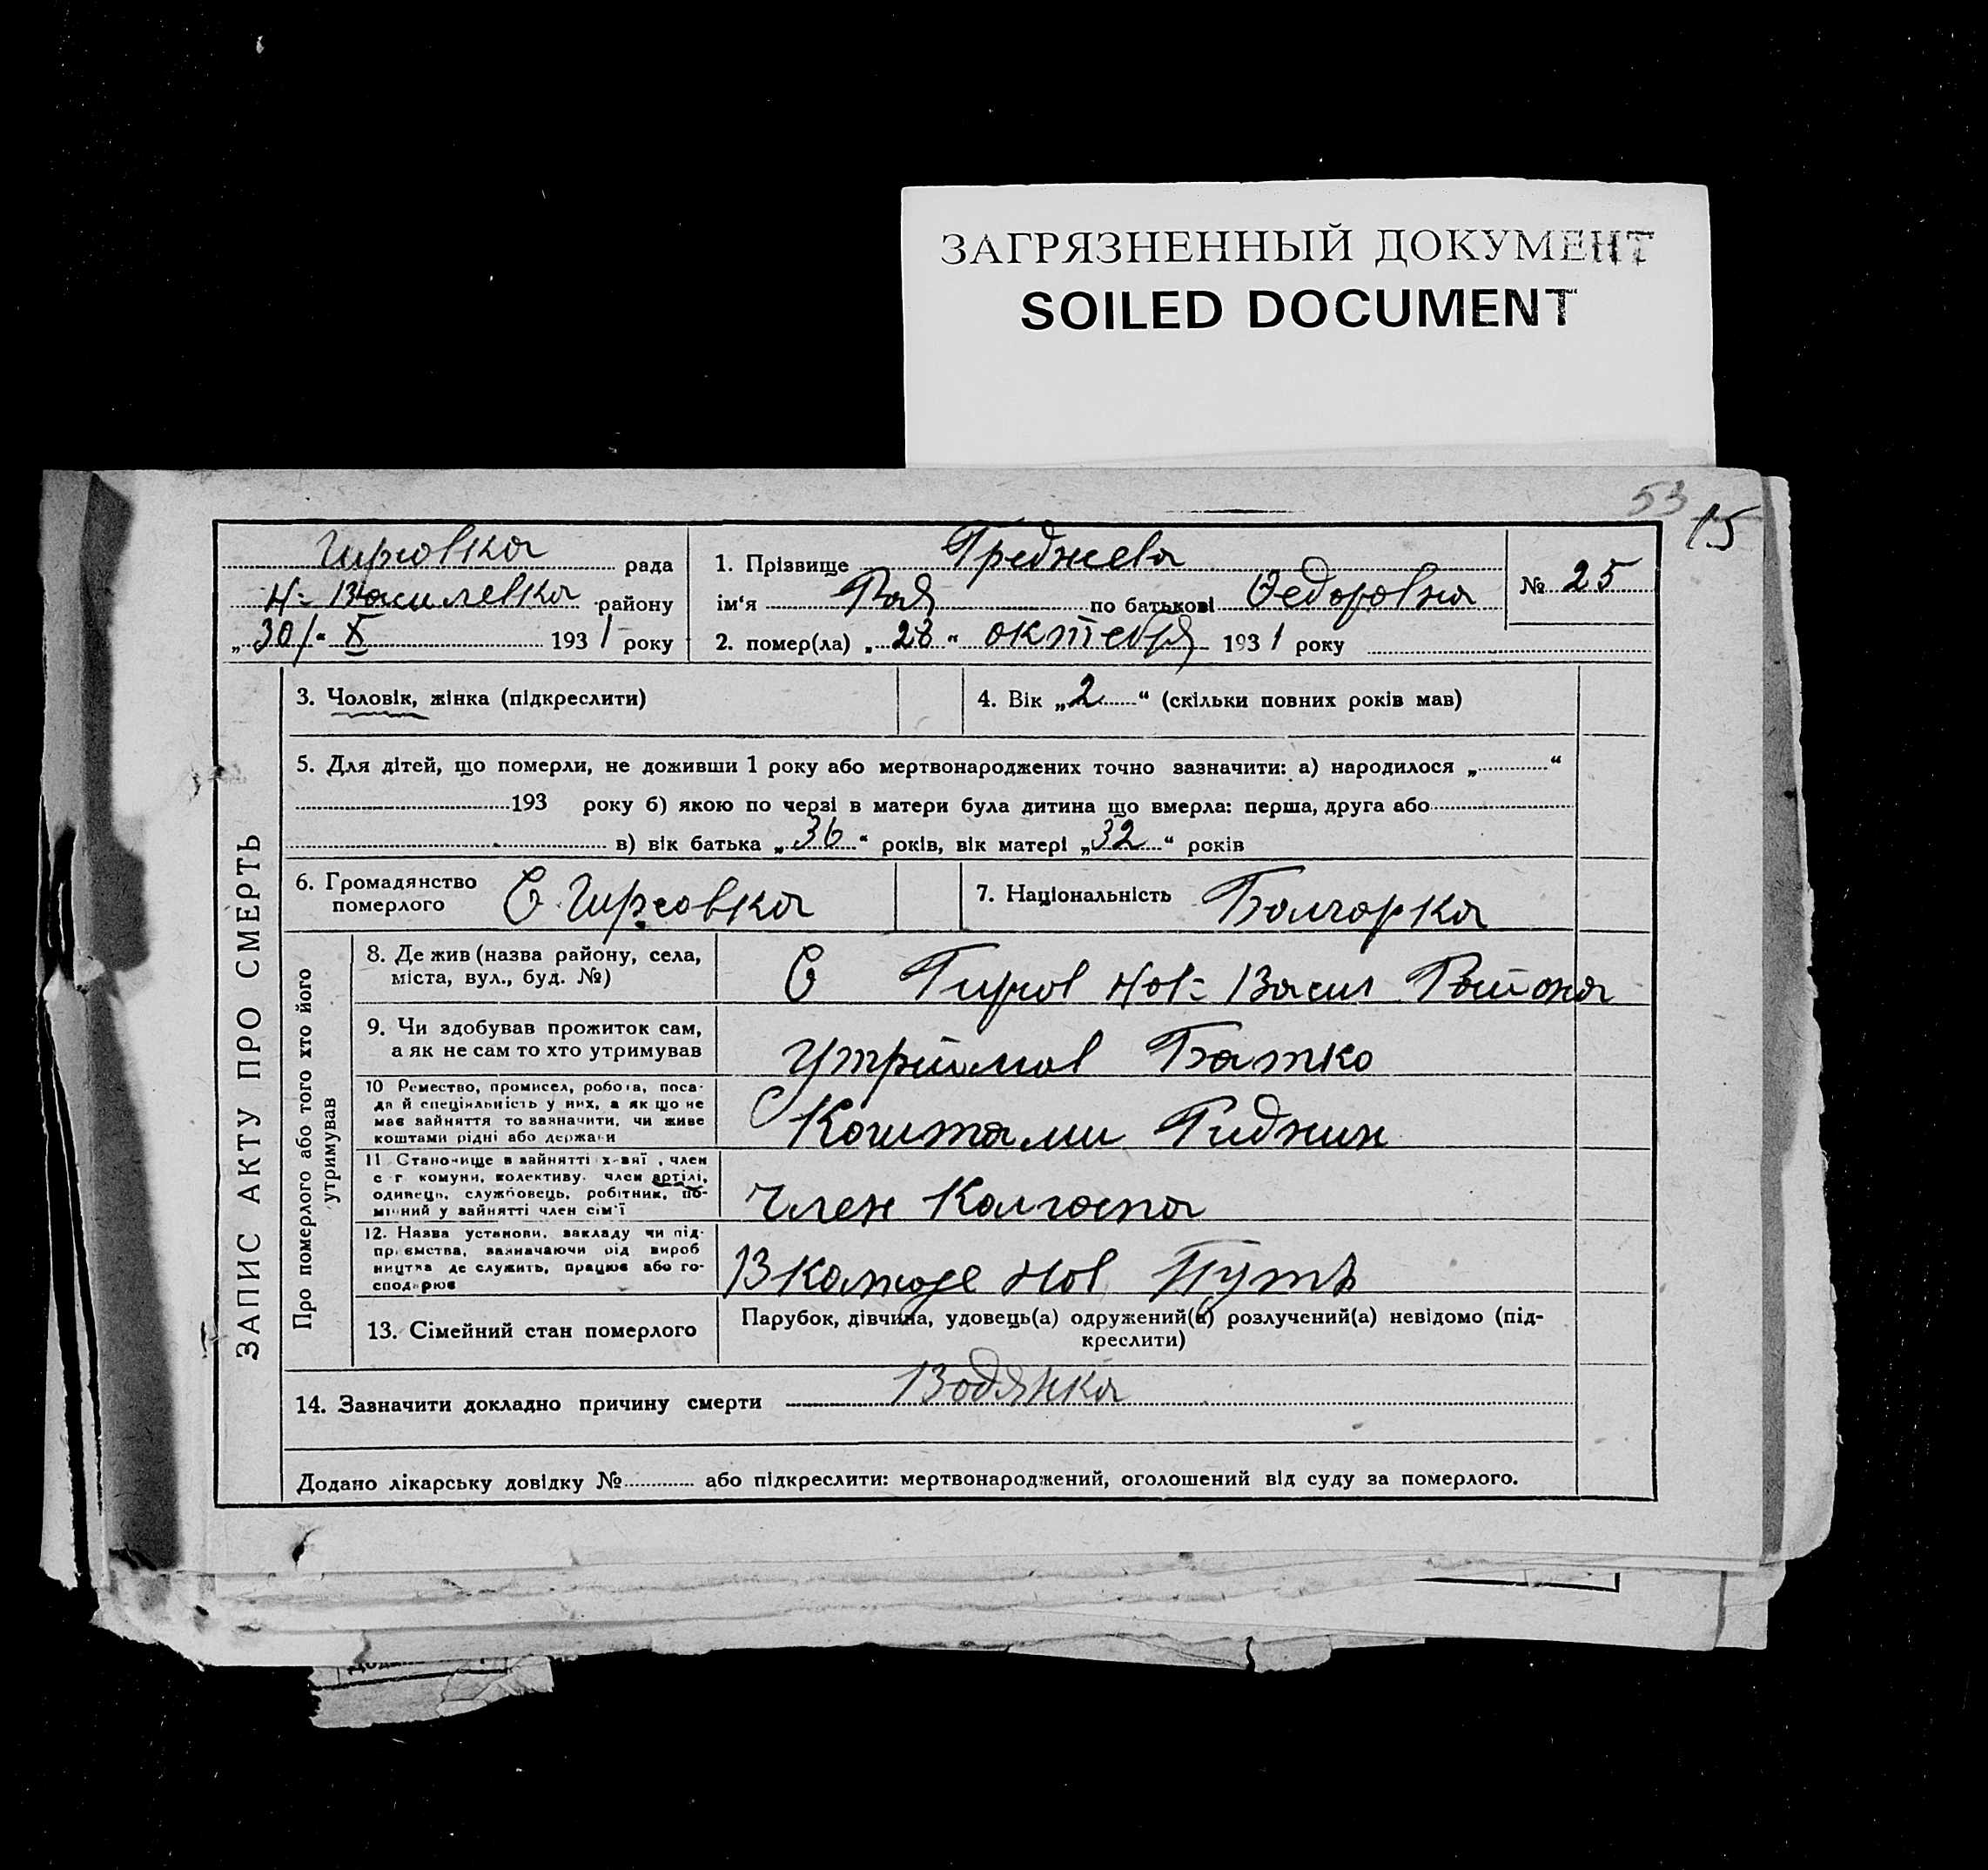 ЗАГРЯЗНЕННЫЙ ДОКУМЕНТ
SOILED DOCUMENT
53 15
Гирсовка рада
Н-Василевка району
„30/“ X 1931 року
1. Прізвище Греджева
ім‘я Рая по батькові Федоровна
№ 25
2. помер(ла) „28“ октебря 1931 року
ЗАПИС АКТУ ПРО СМЕРТЬ
3. Чоловік, жінка (підкреслити)
4. Вік „2“ (скільки повних років мав)
5. Для дітей, що померли, не доживши 1 року або мертвонароджених точно зазначити: а) народилося „ “
193 року б) якою по черзі в матери була дитина що вмерла: перша, друга або
в) вік батька „36“ років, вік матері „32“ років
6. Громадянство
померлого С. Гирсовка
7. Національність Болгорка
Про померлого або того хто його
утримував
8. Де жив (назва району, села,
міста, вул., буд. №)
С Гирсов Нов- Васил Района
9. Чи здобував прожиток сам,
а як не сам то хто утримував
Утримов Батко
10 Ремество, промисел, робота, поса-
да й спеціяльність у них, а як що не
має зайняття то зазначити, чи живе
коштами рідні або держави
Коштами Риднин
11 Становище в зайнятті х-вяї, член
с г комуни, колективу, член артілі,
одинець, службовець, робітник, по-
мічний у зайнятті член сім‘ї
член Колгоспа
12. Назва установи, закладу чи під-
приємства, зазначаючи від вироб
ництва де служить, працює або го-
сподарює
Нов Путь
13. Сімейний стан померлого
Парубок, дівчина, удовець(а) одружений(а) розлучений(а) невідомо (під-
креслити)
14. Зазначити докладно причину смерти Водянка
Додано лікарську довідку № або підкреслити: мертвонароджений, оголошений від суду за померлого.